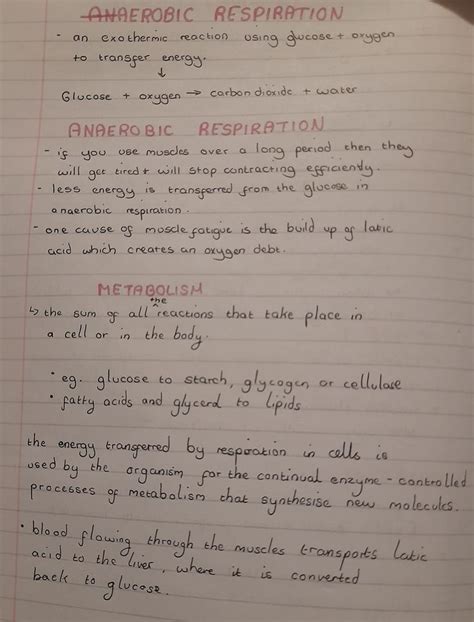 ANAEROBIC RESPIRATION
- an exothermic reaction using glucose + oxygen
to transfer energy.
↓
Glucose + oxygen → carbon dioxide + water
ANAEROBIC RESPIRATION
- if you use muscles over a long period then they
will get tired + will stop contracting efficiently.
- less energy is transferred from the glucose in
anaerobic respiration.
- one cause of muscle fatigue is the build up of latic
acid which creates an oxygen debt.
METABOLISM
↳ the sum of all the reactions that take place in
a cell or in the body.
• eg. glucose to starch, glycogen or cellulose
• fatty acids and glycerol to lipids
the energy transferred by respiration in cells is
used by the organism for the continual enzyme - controlled
processes of metabolism that synthesise new molecules.
• blood flowing through the muscles transports latic
acid to the liver, where it is converted
back to glucose.